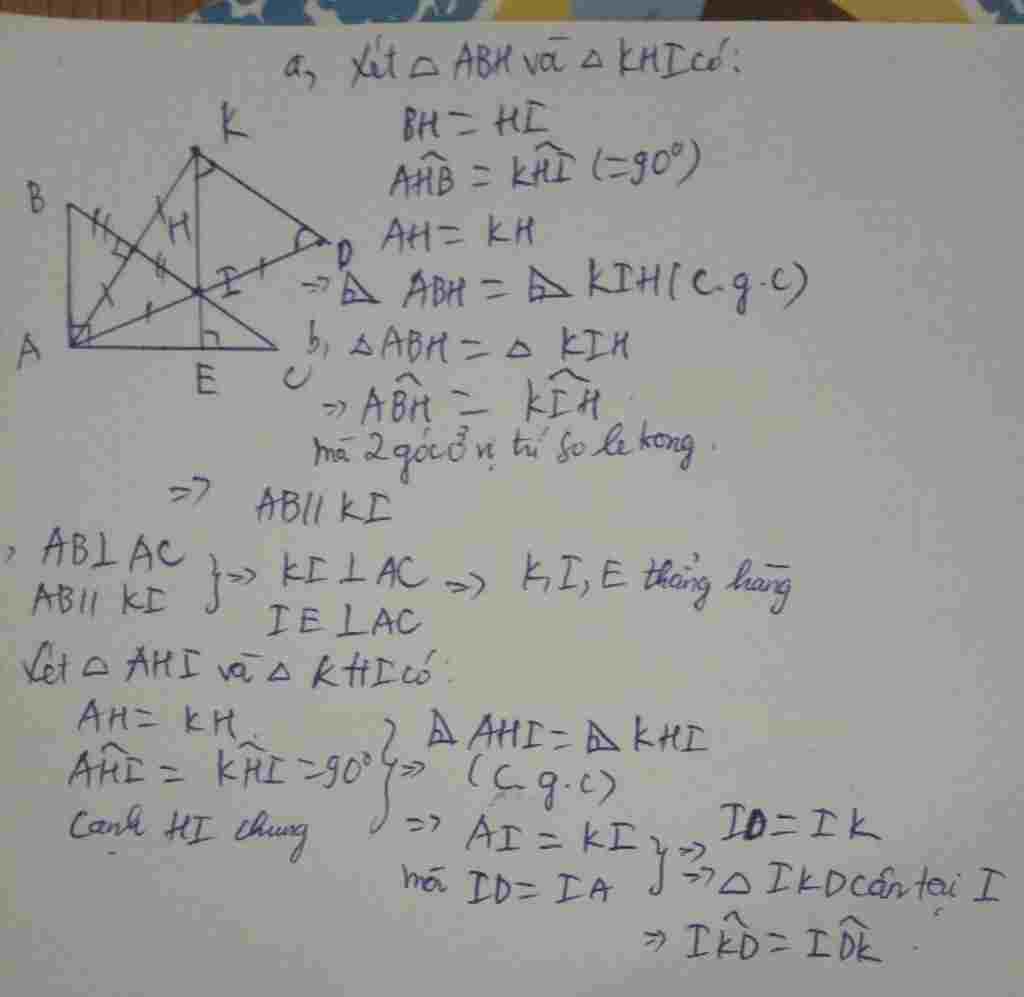 a, Xét △ ABH và △ KHI có:
BH = HI
AĤB = KĤI (=90°)
AH = KH
=> ⊿ ABH = ⊿ KIH (c.g.c)
K
B
H
D
I
A
E
C
b, △ ABH = △ KIH
=> AB̂H = KÎH
mà 2 góc ở vị trí so le trong.
=> AB // KI
, AB ⊥ AC
AB // KI } => KI ⊥ AC => K, I, E thẳng hàng
IE ⊥ AC
Xét △ AHI và △ KHI có:
AH = KH
AĤI = KĤI = 90°
Cạnh HI chung
} => ⊿ AHI = ⊿ KHI
(c.g.c)
=> AI = KI
mà ID = IA
} => ID = IK
=> △ IKD cân tại I
=> IK̂D = ID̂K.